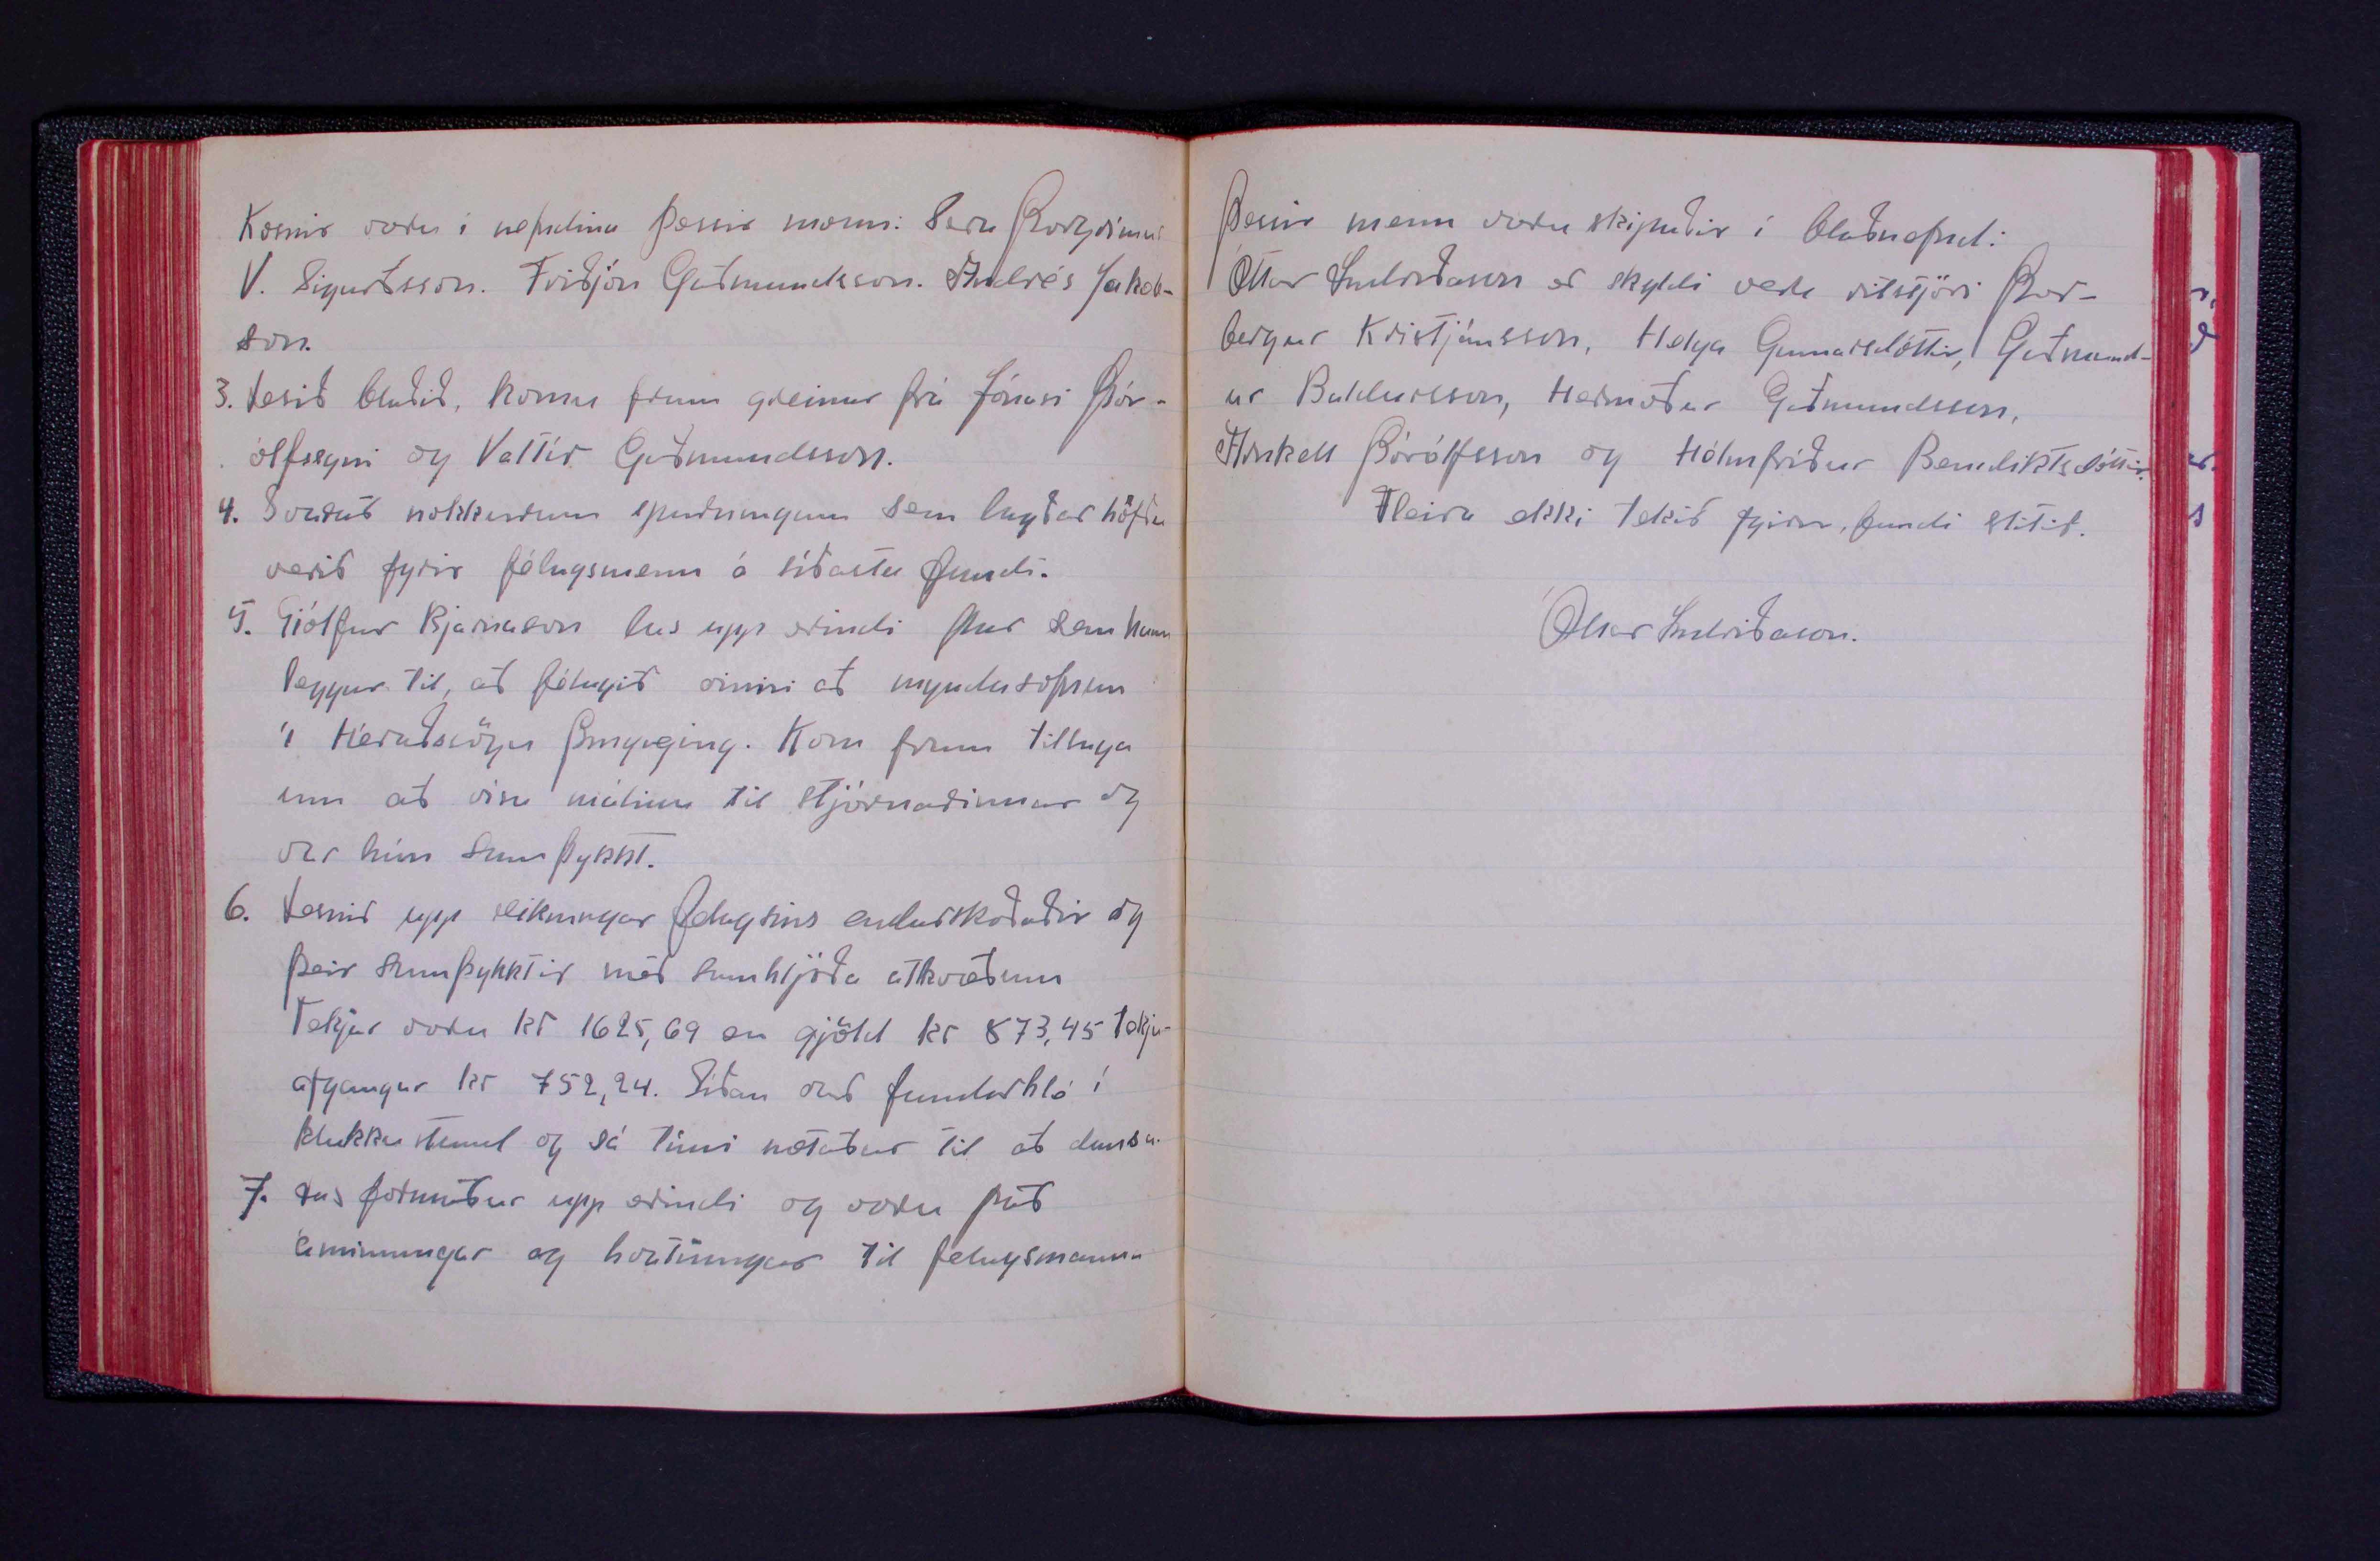 Kosnir voru í nefndina þessir menn: Séra Þorgrímur
V. Sigurðsson. Friðjón Guðmundsson. Andrés Jakob-
son.
3. Lesið blaðið, komu fram greinar frá Jónasi Þór-
ólfssyni og Valtír Guðmundsson.
4. Svarað nokkurum spurningum sem lagðar höfðu
verið fyrir félagsmenn á síðasta fundi.
5. Bjarnason las upp erindi þar sem hann
leggur til, að félagið vinni að myndasöfnun
í Héraðssögu Þingeying. Kom fram tillaga
um að vísa málinu til stjórnarinnar og
var hún samþykkt.
6. Lesnir upp reikningar félagsins endurskoðaðir og
þeir samþykktir með samhljóða atkvæðum
Tekjur voru kr 1625,69 en gjöld kr 873,45 tekju-
afgangur kr 752,24. Síðan var fundarhlé í
klukkustund og sá tími notaður til að dansa.
7. Las formaður upp erindi og voru það
áminningar og hvatningar til félagsmanna
Þessir menn voru skipaðir í blaðnefnd:
Óttar Indriðason er skyldi vera ritstjóri Þor-
bergur Kristjánsson, Helga Gunnarsdóttir, Guðmund-
ur Baldursson, Hermóður Guðmundsson,
Hrnkell Þórólfsson og Hólmfríður Benediktsdóttir.
Fleira ekki tekið fyrir, fundi slitið.
Óttar Indriðason.